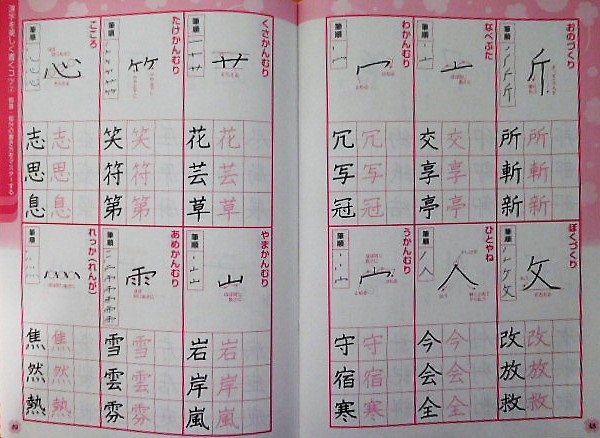 おのづくり
筆順
斤
所所
斬斬
新新
なべぶた
筆順
亠
交交
享享
亭亭
わかんむり
筆順
冖
冗冗
写写
冠冠
ぼくづくり
筆順
攵
改改
放放
救救
ひとやね
筆順
人
今今
会会
全全
うかんむり
筆順
宀
守守
宿宿
寒寒
48
くさかんむり
筆順
艹
花花
芸芸
草草
たけかんむり
筆順
竹
笑笑
符符
第第
こころ
筆順
心
志志
思思
息息
やまかんむり
筆順
山
岩岩
岸岸
嵐嵐
あめかんむり
筆順
雨
雪雪
雲雲
雰雰
れっか（れんが）
筆順
灬
焦焦
然然
熱熱
漢字を美しく書くコツ② 部首・部分の書き方をマスターする
49